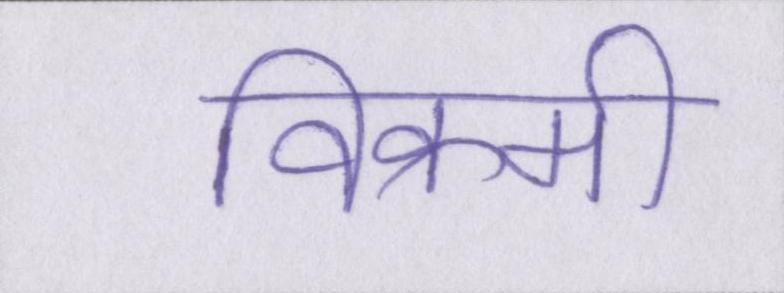 विक्रमी